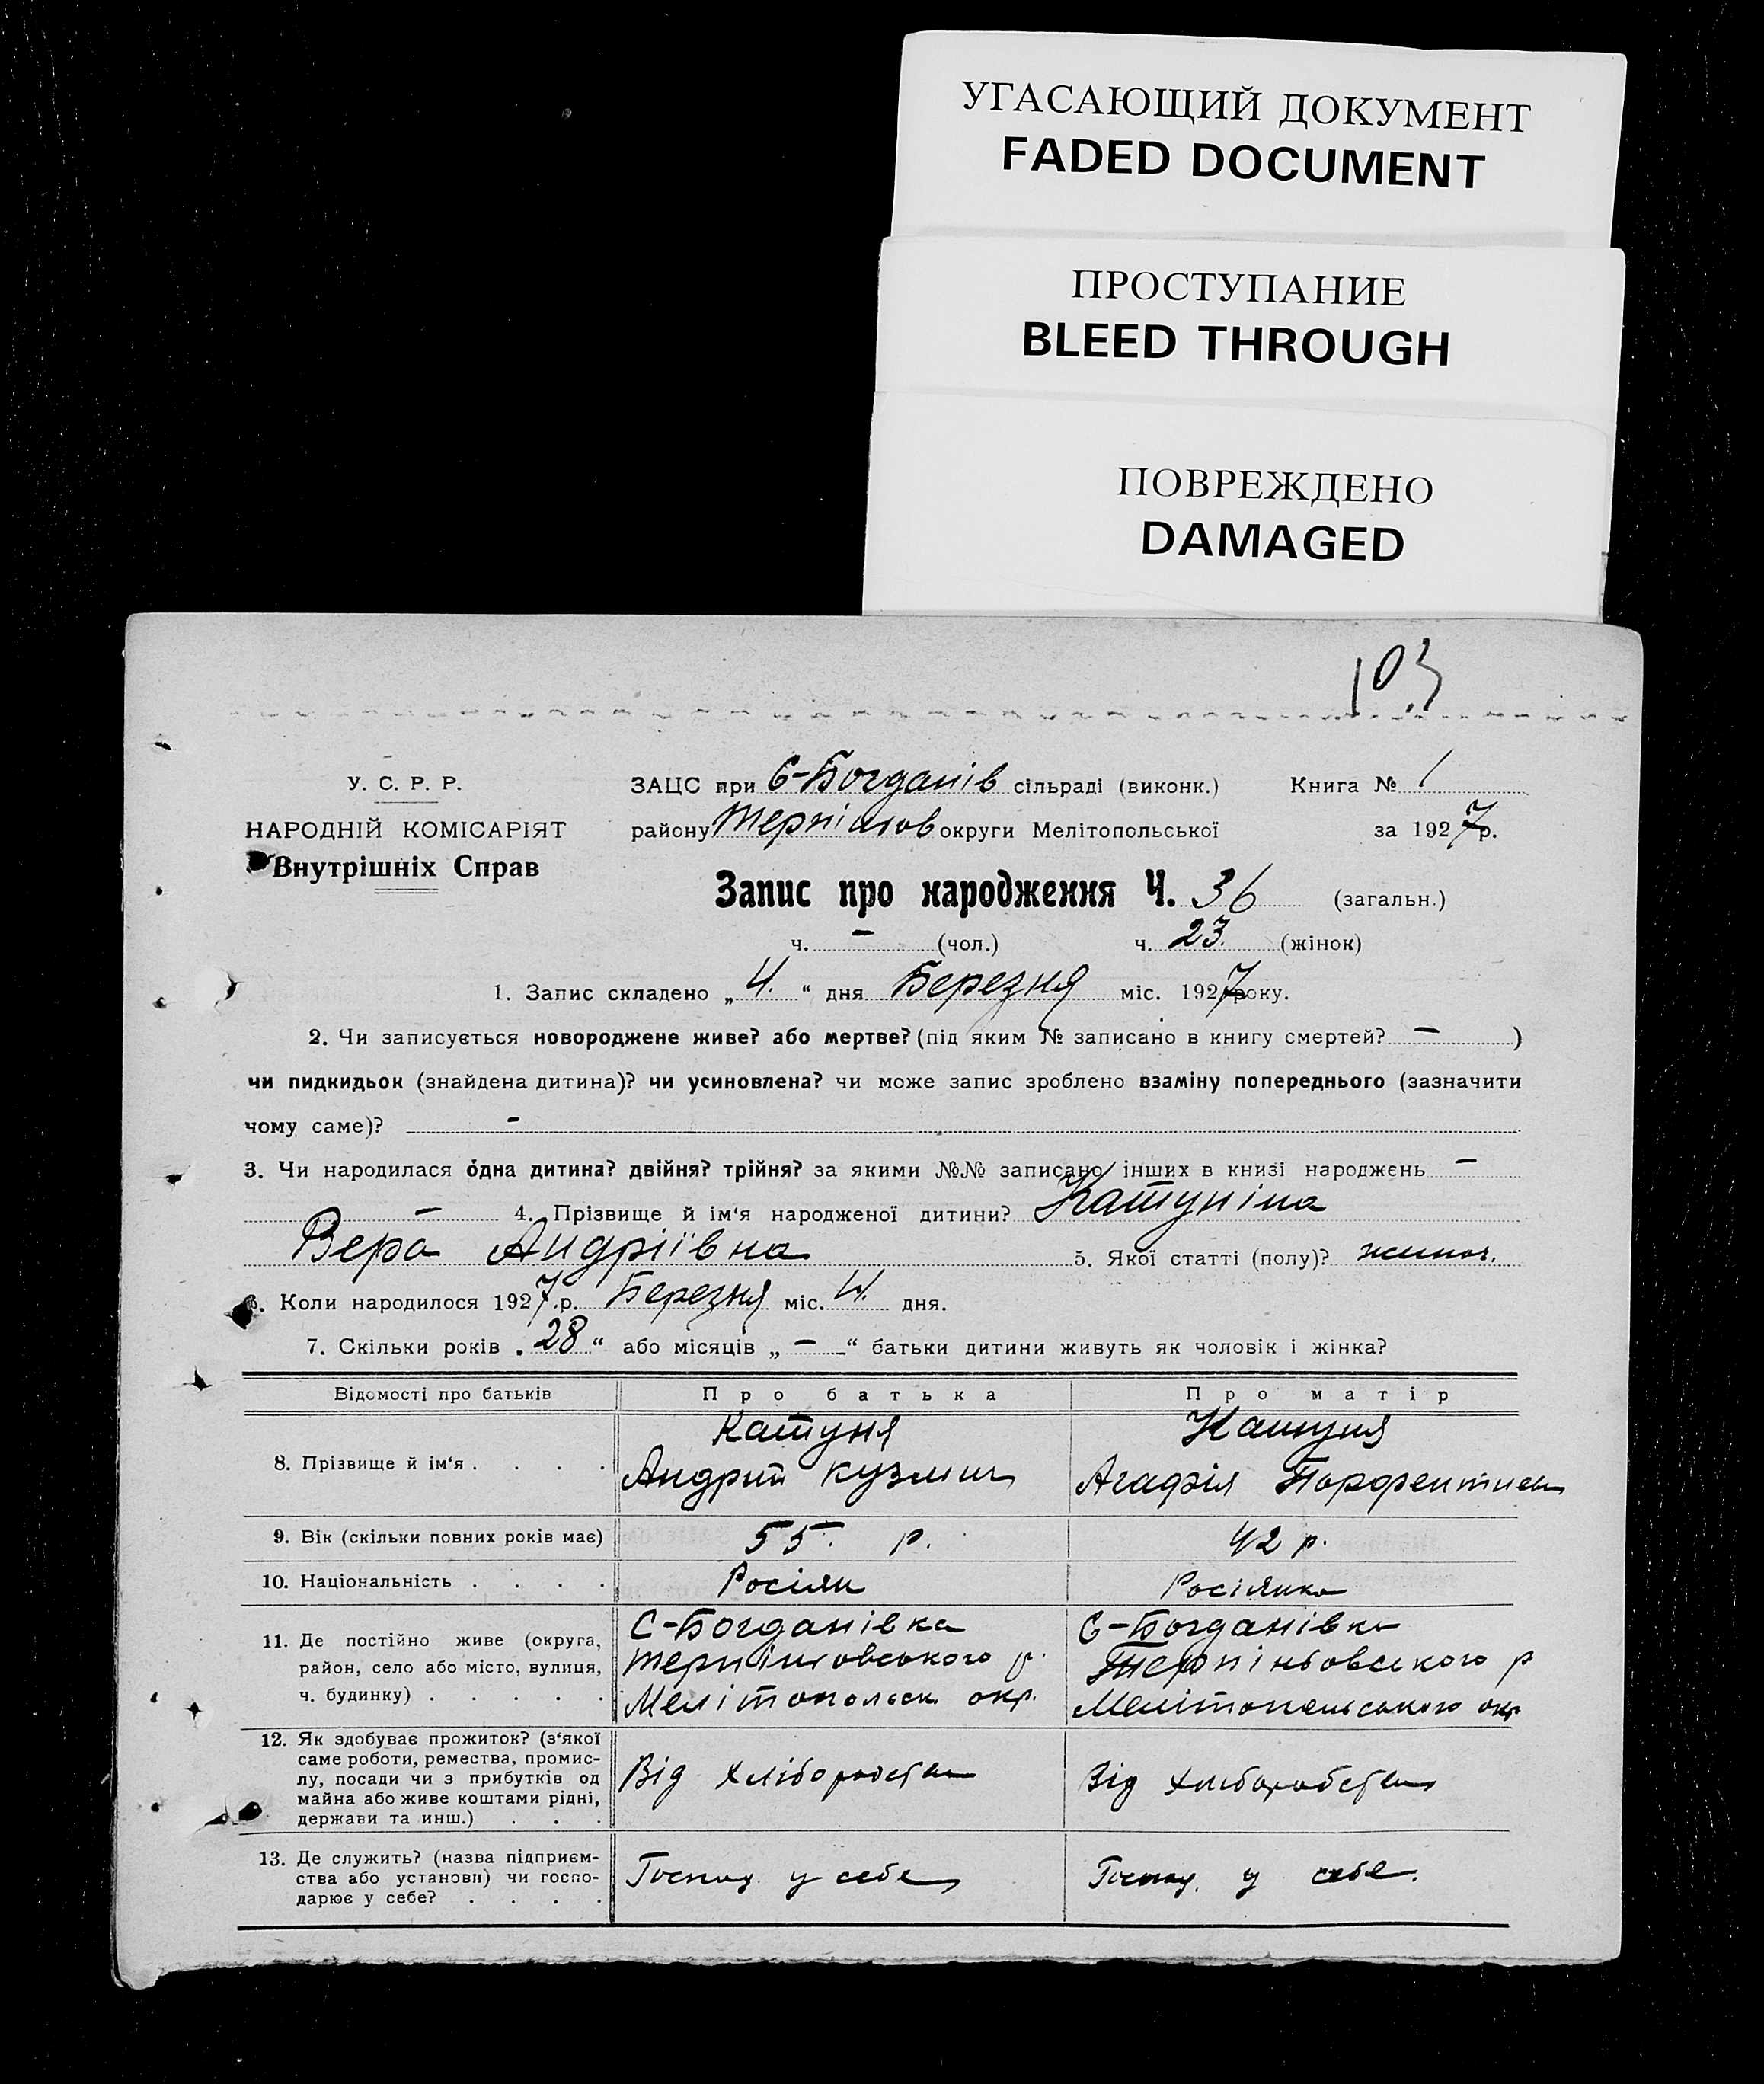 УГАСАЮЩИЙ ДОКУМЕНТ
FADED DOCUMENT
ПРОСТУПАНИЕ
BLEED THROUGH
ПОВРЕЖДЕНО
DAMAGED
103
У. С. Р. Р.
НАРОДНІЙ КОМІСАРІЯТ
Внутрішніх Справ
ЗАЦС при С-Богданів сільраді (виконк.) Книга № 1
району Терпіньов округи Мелітопольської за 1927 р.
Запис про народження Ч. 36 (загальн.)
ч. — (чол.) ч. 23. (жінок)
1. Запис складено „ 4. “ дня Березня міс. 1927 року.
2. Чи записується новороджене живе? або мертве? (під яким № записано в книгу смертей? — )
чи пидкидьок (знайдена дитина)? чи усиновлена? чи може запис зроблено взаміну попереднього (зазначити
чому саме)? -
3. Чи народилася одна дитина? двійня? трійня? за якими №№ записано інших в книзі народжень —
— 4. Прізвище й ім'я народженої дитини? Катуніна
Вера Андріївна 5. Якої статті (полу)? жиноч.
6. Коли народилося 1927 .р. Березня міс. 4. дня.
7. Скільки років „ 28 “ або місяців „ — “ батьки дитини живуть як чоловік і жінка?
Відомості про батьків Про батька Про матір
8. Прізвище й ім'я . . . .
Катуня
Андрий Кузмич
Катуня
Агафія
9. Вік (скільки повних років має) 55. р. 42 р.
10. Національність . . . . Росіян Росіянка
11. Де постійно живе (округа,
район, село або місто, вулиця,
ч. будинку) . . . . .
С-Богданівка
Терпіньовського р.
Мелітопольск окр.
С-Богданівка
Терпіньовського р
Мелітопольського окр
12. Як здобуває прожиток? (з'якої
саме роботи, ремества, промис-
лу, посади чи з прибутків од
майна або живе коштами рідні,
держави та инш.) . . .
Від Хліборобства
Від Хлиборобства
13. Де служить? (назва підприєм-
ства або установи) чи госпо-
дарює у себе? . . . .
Господ. у себе
Господ. у себе.